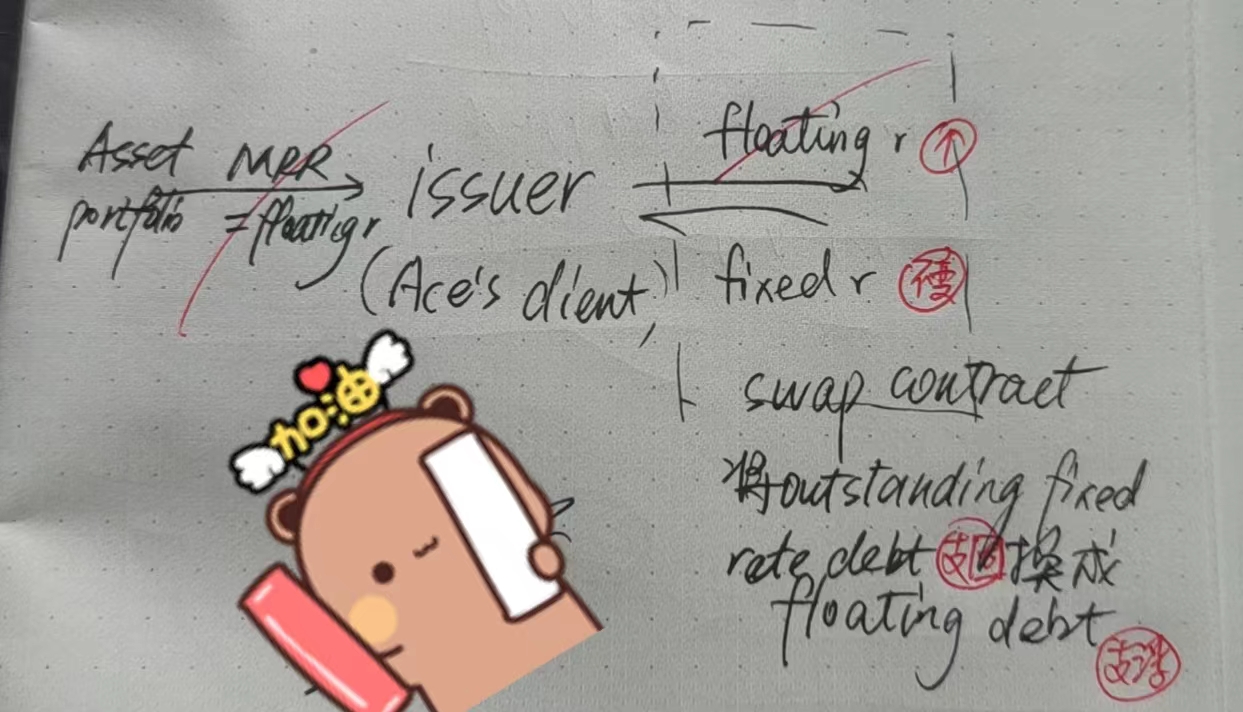 Asset MRR
portfolio =floating r
issuer
(Ace's client)
floating r ↑
fixed r 不变
swap contract
将outstanding fixed
rate debt 支固 换成
floating debt
支浮